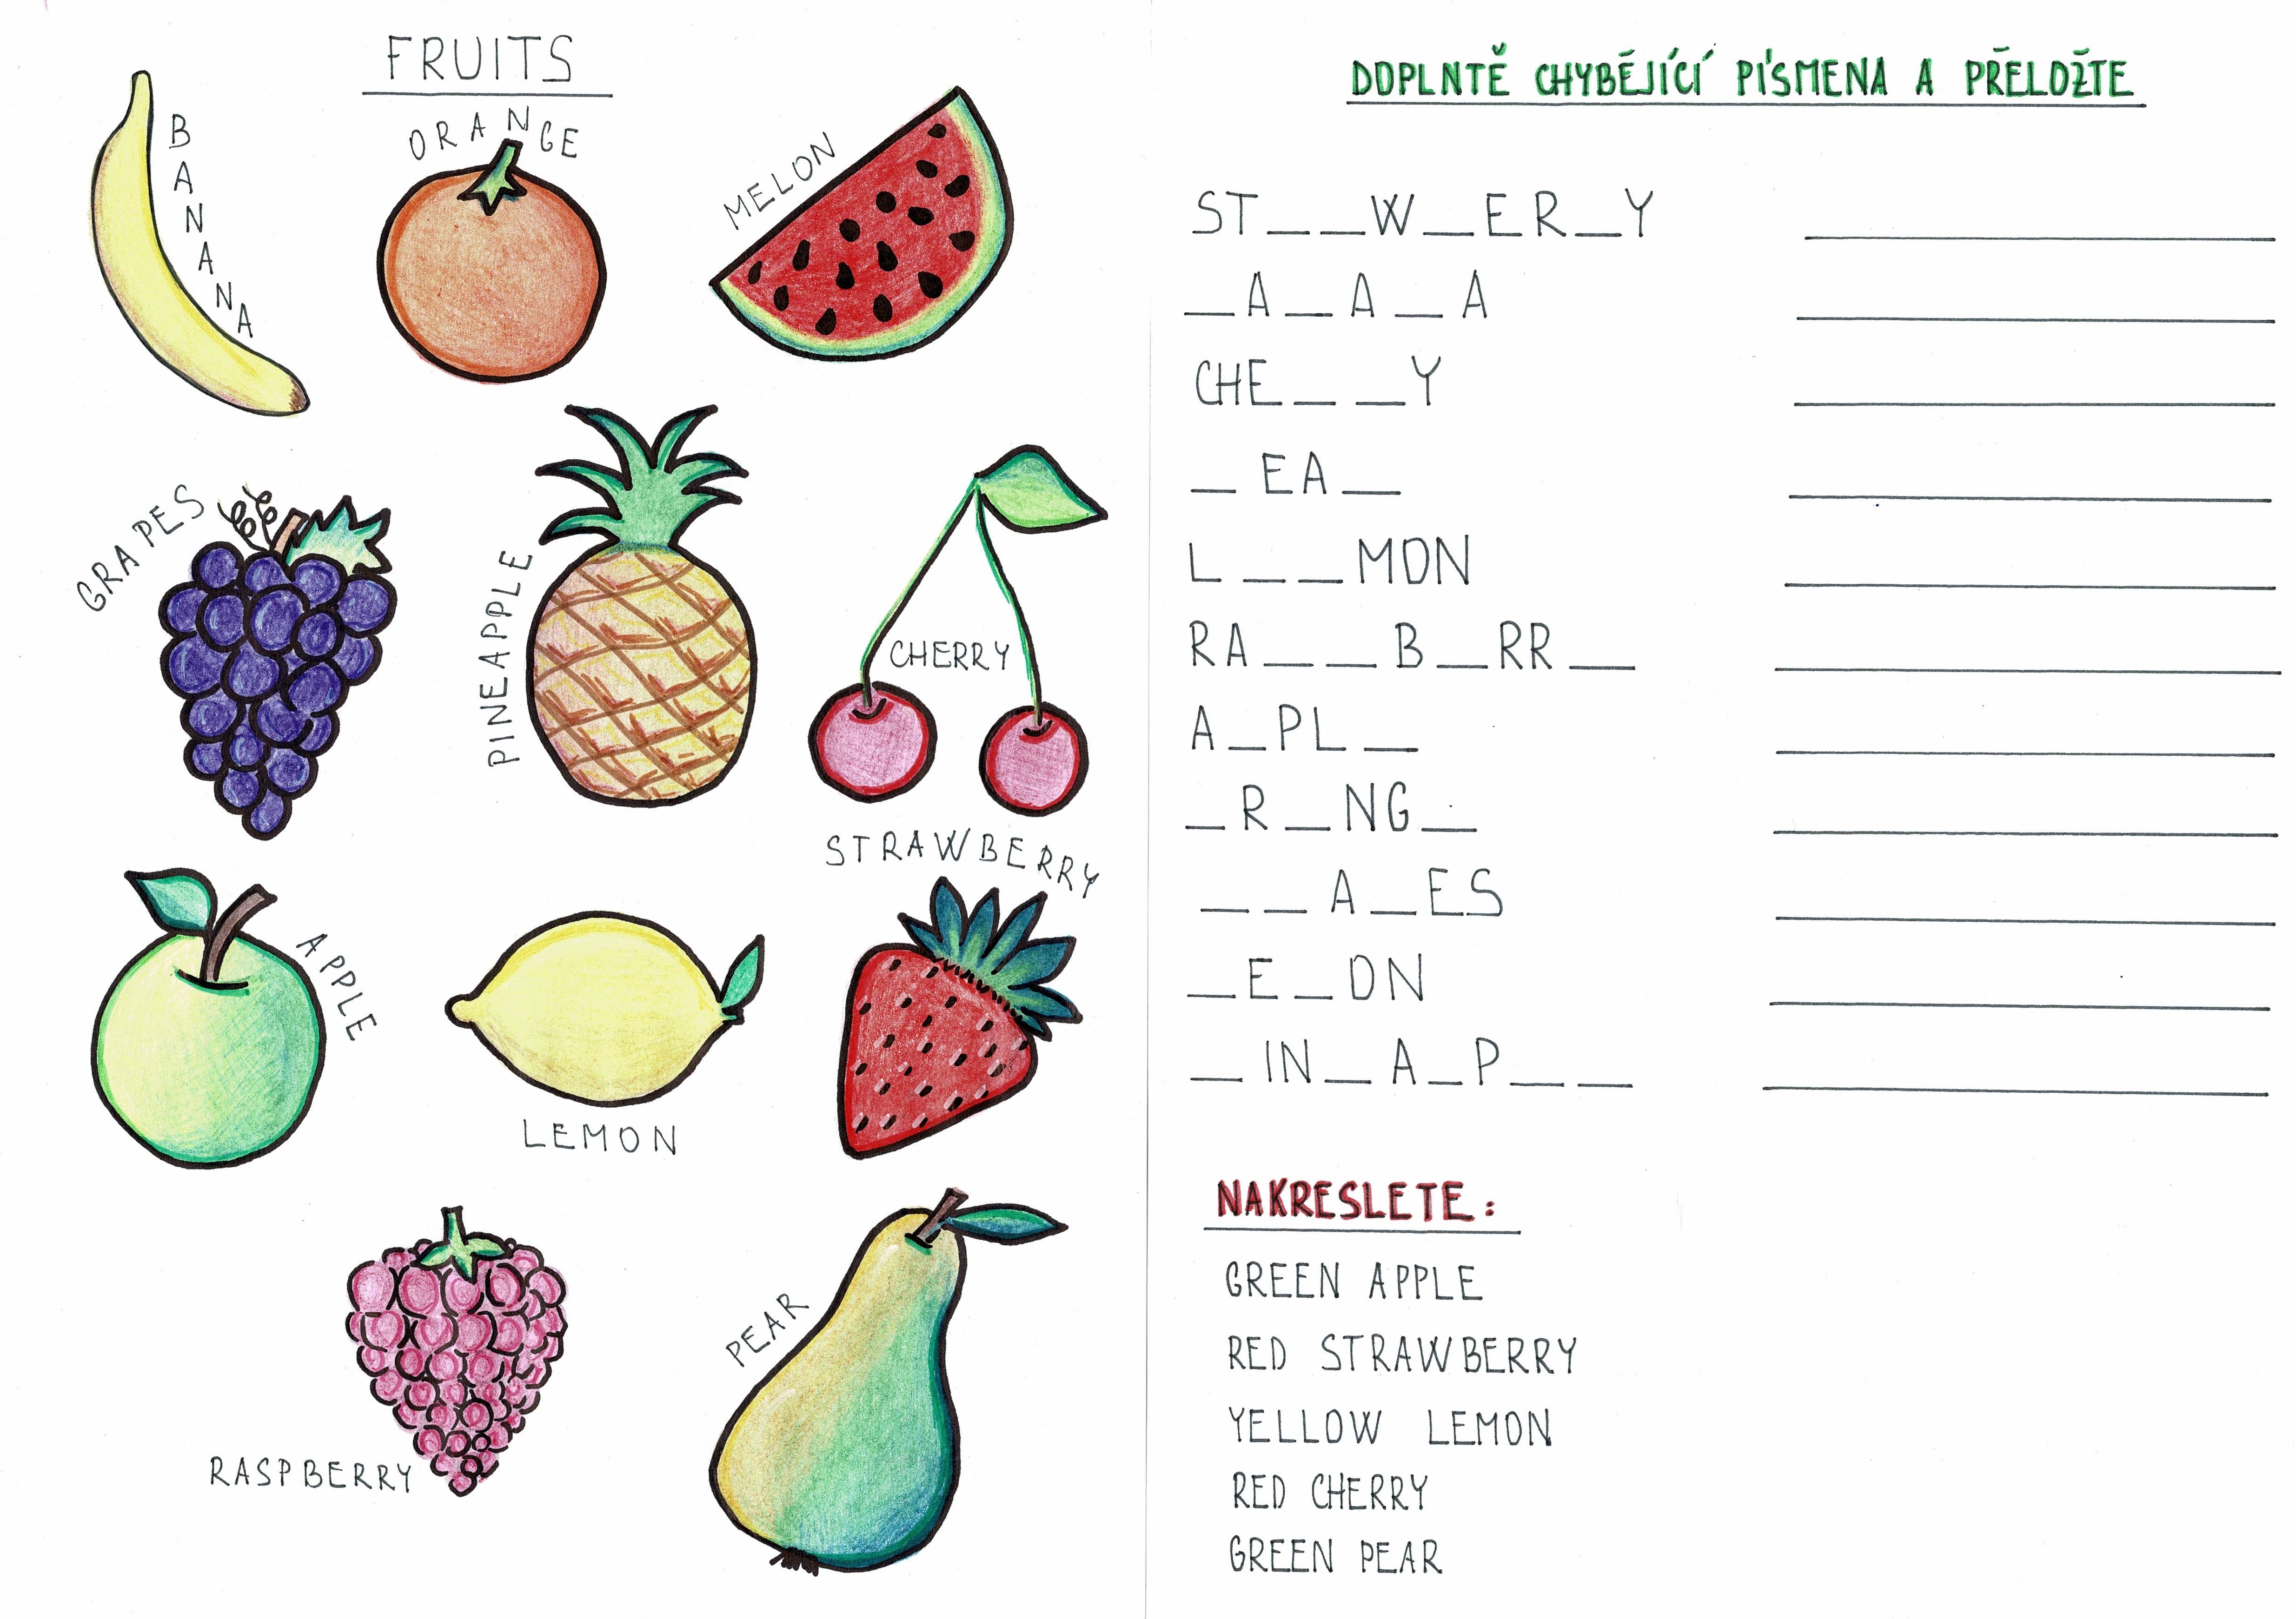 FRUITS
BANANA
ORANGE
MELON
GRAPES
PINEAPPLE
CHERRY
STRAWBERRY
APPLE
LEMON
RASPBERRY
PEAR
DOPLNTĚ CHYBĚJÍCÍ PÍSMENA A PŘELOŽTE
ST__W_ER_Y
_A_A_A
CHE__Y
_EA_
L__MON
RA__B_RR_
A_PL_
_R_NG_
__A_ES
_E_ON
_IN_A_P__
NAKRESLETE:
GREEN APPLE
RED STRAWBERRY
YELLOW LEMON
RED CHERRY
GREEN PEAR